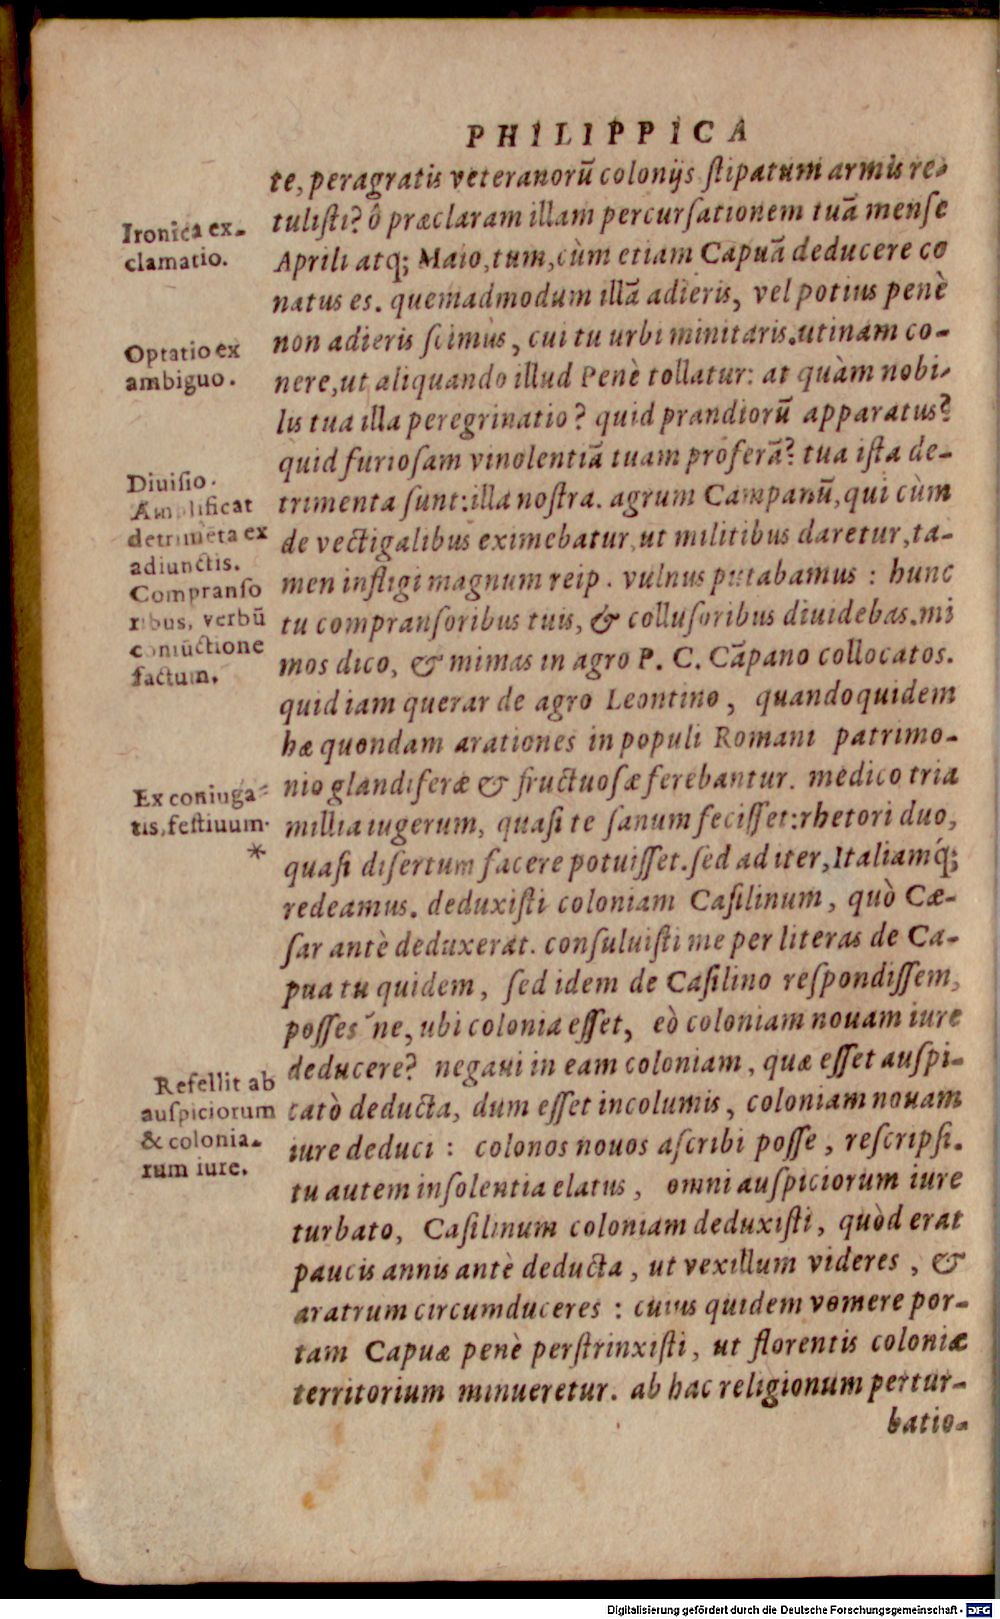 PHILIPPICA
te, peragratis veteranorū colonijs ſtipatum armis re-
tuliſti? ô præclaram illam percurſationem tuā menſe
Aprili atq; Maio, tum, cùm etiam Capuā deducere co
natus es. quemadmodum illā adieris, vel potius penè
non adieris ſcimus, cui tu urbi minitaris. utinam co-
nere, ut aliquando illud Penè tollatur: at quàm nobi-
lis tua illa peregrinatio? quid prandiorū apparatus?
quid furioſam vinolentiā tuam proferā? tua iſta de-
trimenta ſunt: illa noſtra. agrum Campanū, qui cùm
de vectigalibus eximebatur, ut militibus daretur, ta-
men infligi magnum reip. vulnus putabamus: hunc
tu compranſoribus tuis, & colluſoribus diuidebas. mi
mos dico, & mimas in agro P. C. Cāpano collocatos.
quid iam querar de agro Leontino, quandoquidem
hæ quondam arationes in populi Romani patrimo-
nio glandiferæ & fructuoſæ ferebantur. medico tria
millia iugerum, quaſi te ſanum feciſſet: rhetori duo,
quaſi diſertum facere potuiſſet. ſed ad iter, Italiamq́;
redeamus. deduxiſti coloniam Caſilinum, quò Cæ-
ſar antè deduxerat. conſuluiſti me per literas de Ca-
pua tu quidem, ſed idem de Caſilino reſpondiſſem,
poſſes ́ne, ubi colonia eſſet, eò coloniam nouam iure
deducere? negaui in eam coloniam, quæ eſſet auſpi-
catò deducta, dum eſſet incolumis, coloniam nouam
iure deduci: colonos nouos aſcribi poſſe, reſcripſi.
tu autem inſolentia elatus, omni auſpiciorum iure
turbato, Caſilinum coloniam deduxiſti, quòd erat
paucis annis antè deducta, ut vexillum videres, &
aratrum circumduceres: cuius quidem vomere por-
tam Capuæ penè perſtrinxiſti, ut florentis coloniæ
territorium minueretur. ab hac religionum pertur-
batio-
Ironica ex-
clamatio.
Optatio ex
ambiguo.
Diuiſio.
Amplificat
detrimēta ex
adiunctis.
Compranſo
ribus, verbū
coniūctione
factum.
Ex coniuga-
tis, feſtiuum.
*
Refellit ab
auſpiciorum
& colonia-
rum iure.
Digitalisierung gefördert durch die Deutsche Forschungsgemeinschaft - DFG